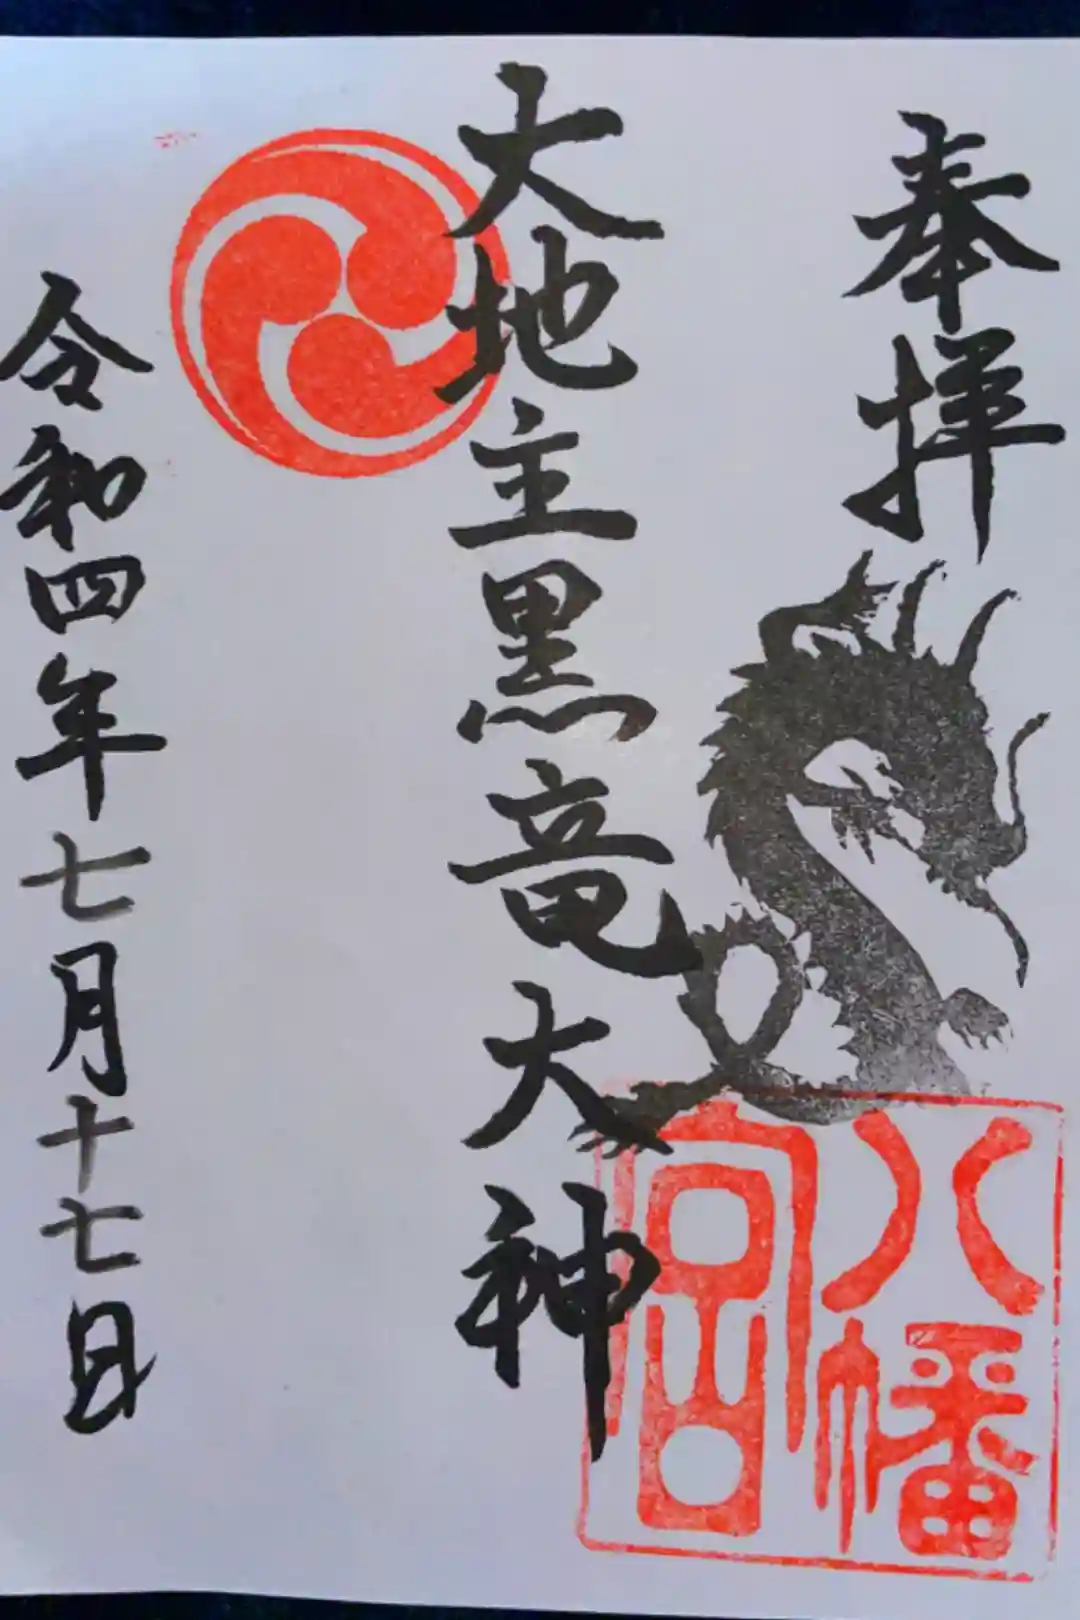 奉拝
八幡宮
大地主黒竜大神
令和四年七月十七日